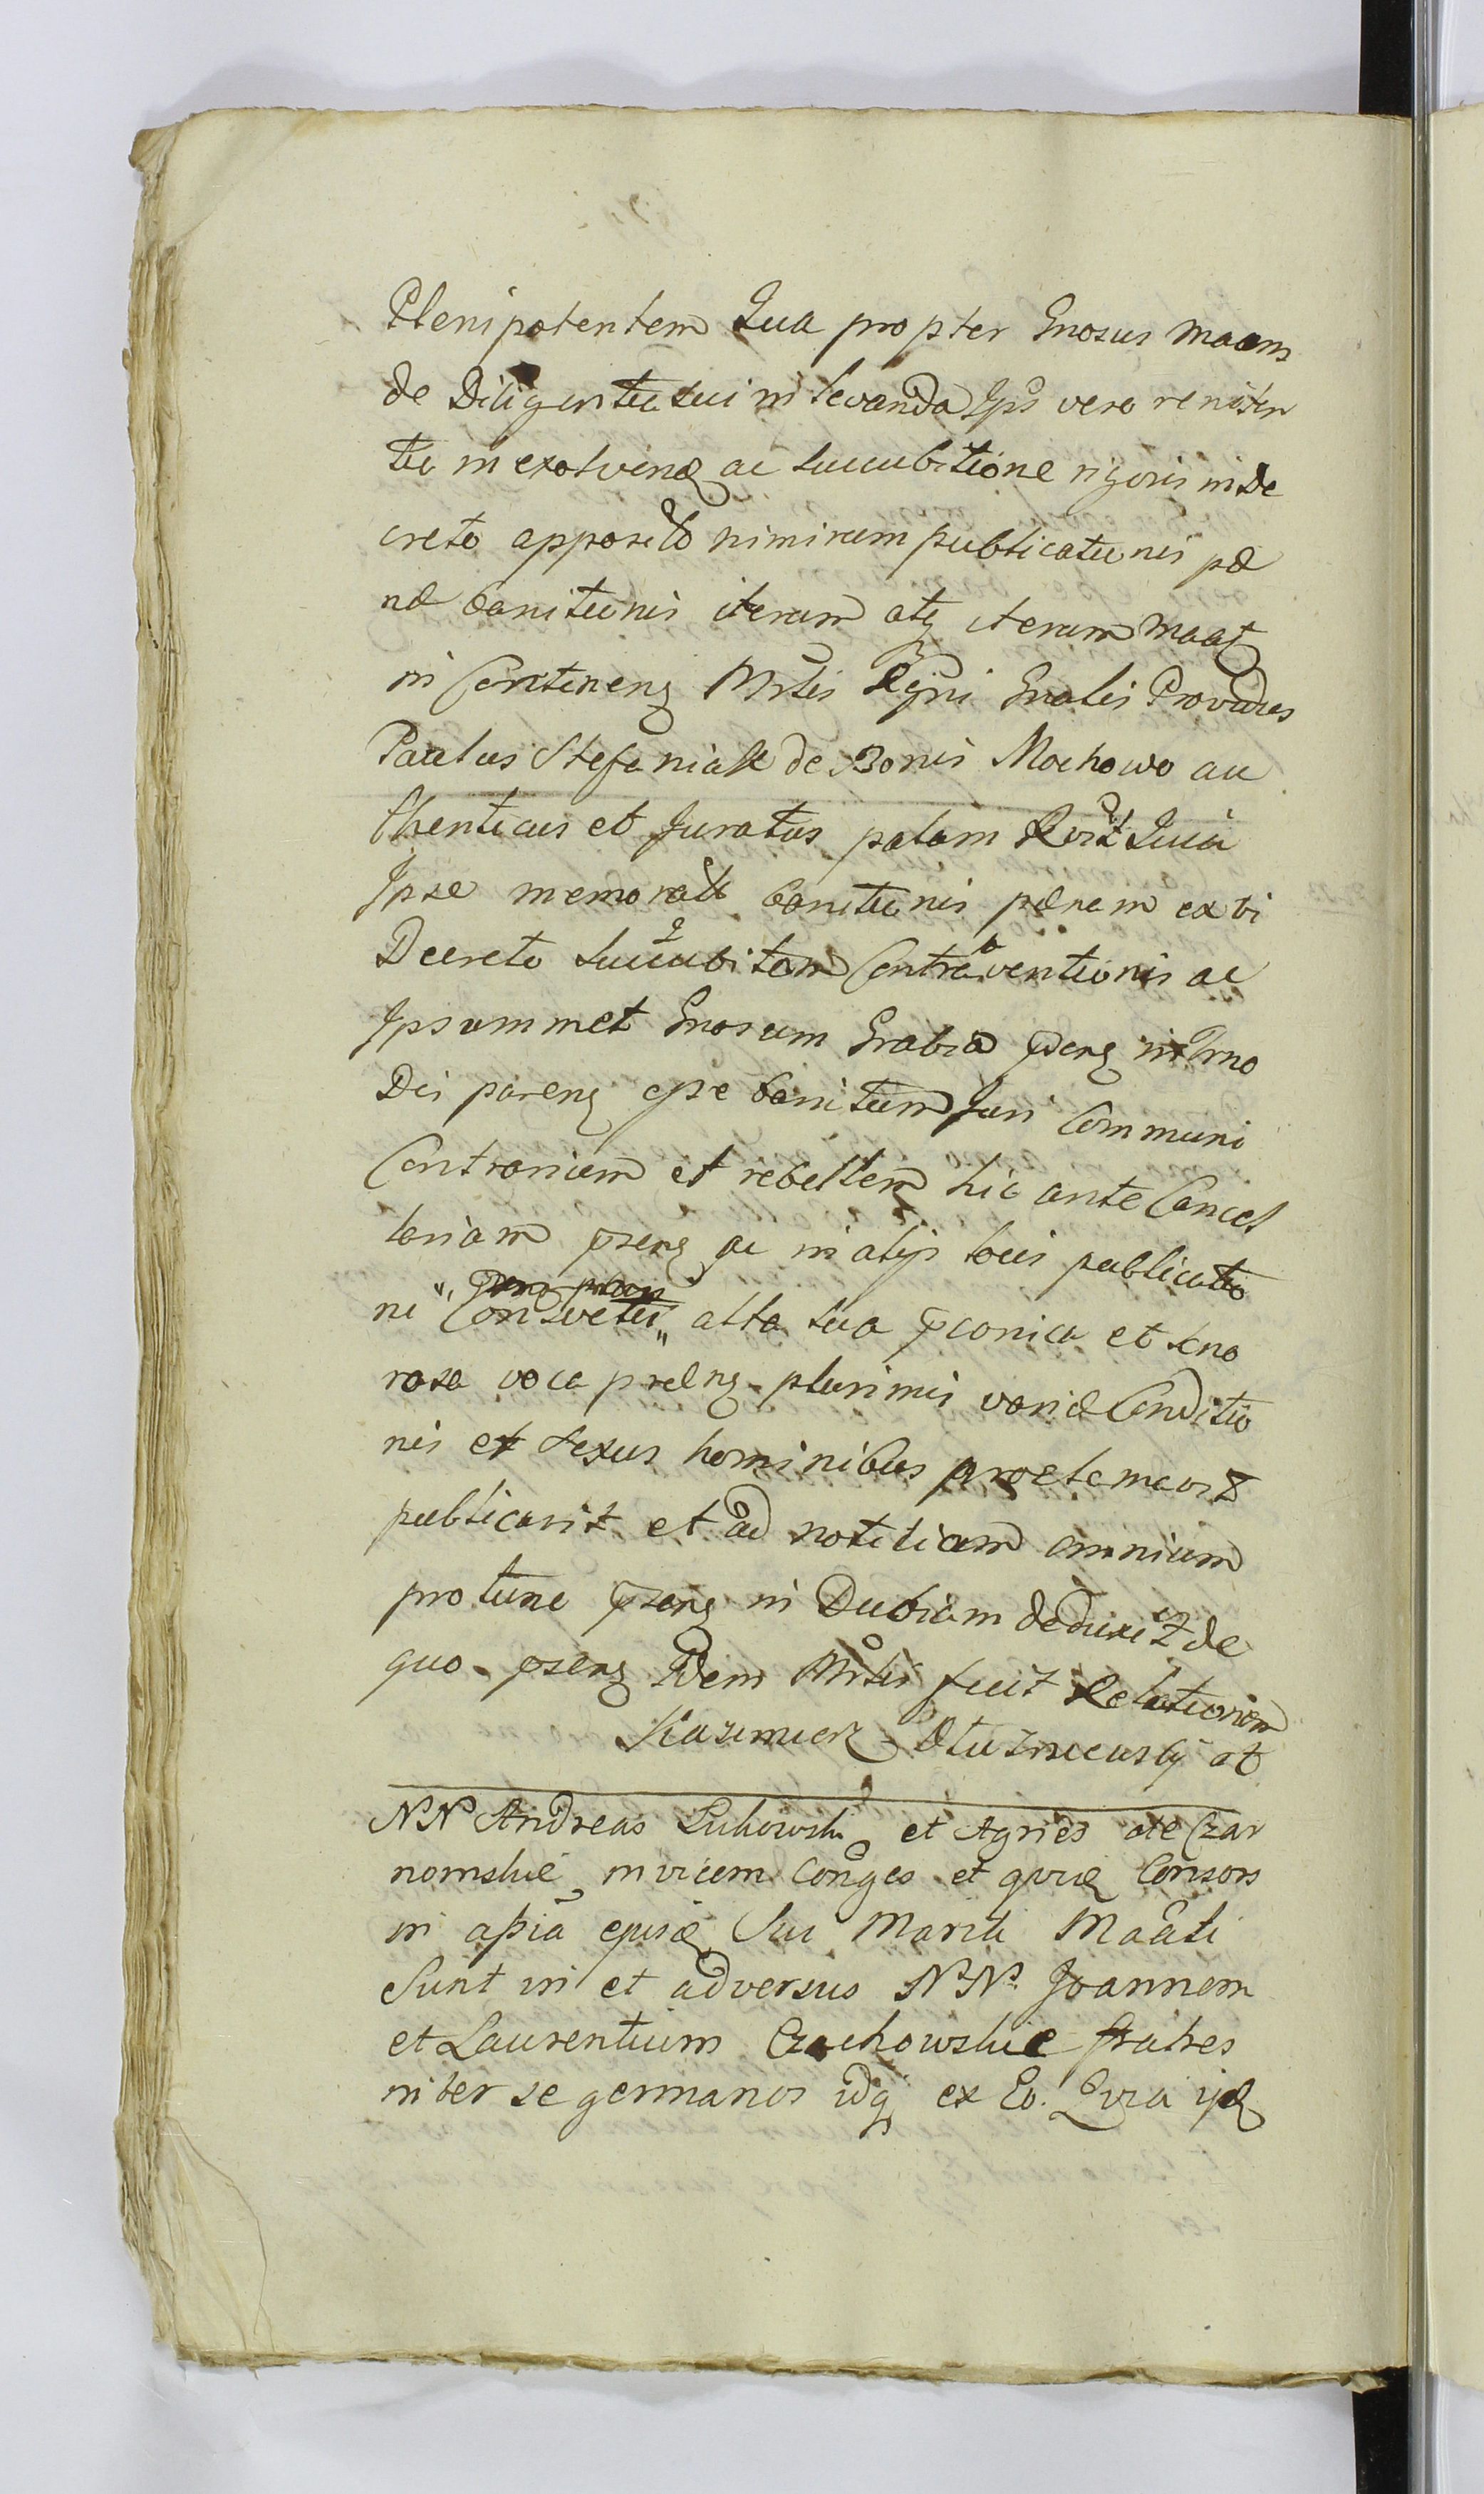 Plenipotentem Qua propter Gnosus Maam
de Diligentia sui in levanda Ipso vero renisten
tia in exolvenda ac succubitione rigoris in De
creto apposito nimirum publicationis pæ
næ banitionis iterum atq iterum maat
in Contineng Mrlis Regni Gnalis Providus
Paulus Stefaniak de Bonis Mochowo au
thenticus et Juratus palam Rvit Quia
Ipse memorata banitionis pænam ex vi
Decreto succubitam Contraventionis ac
Ipsummet Gnosum Grabia pseng in Trno
Dei pareng esse banitum Juri Communi
Contrarium et rebellem hic ante Cancel
lariam pseng ac in alijs locis publicatio
ni Consvetis alta sua pconica et sono
rosa voce præng plurimis variæ Conditio
nis et sexus hominibus proclamavit
publicavit et ad notitiam omnium
pro tunc pseng in Dubiam deduxit de
quo pseng Idem Mrlis fecit Relationem
Kazimierz Dłużniewski mp
NN Andreas Lukowski et Agnes de Czar
nomskie invicem Conges et qvidem Consors
in assia ejusdem Sui Mariti Maati
Sunt in et adversus NN Joannem
et Laurentium Czachowskie fratres
inter se germanos idq ex Eo. Qvia ijdem